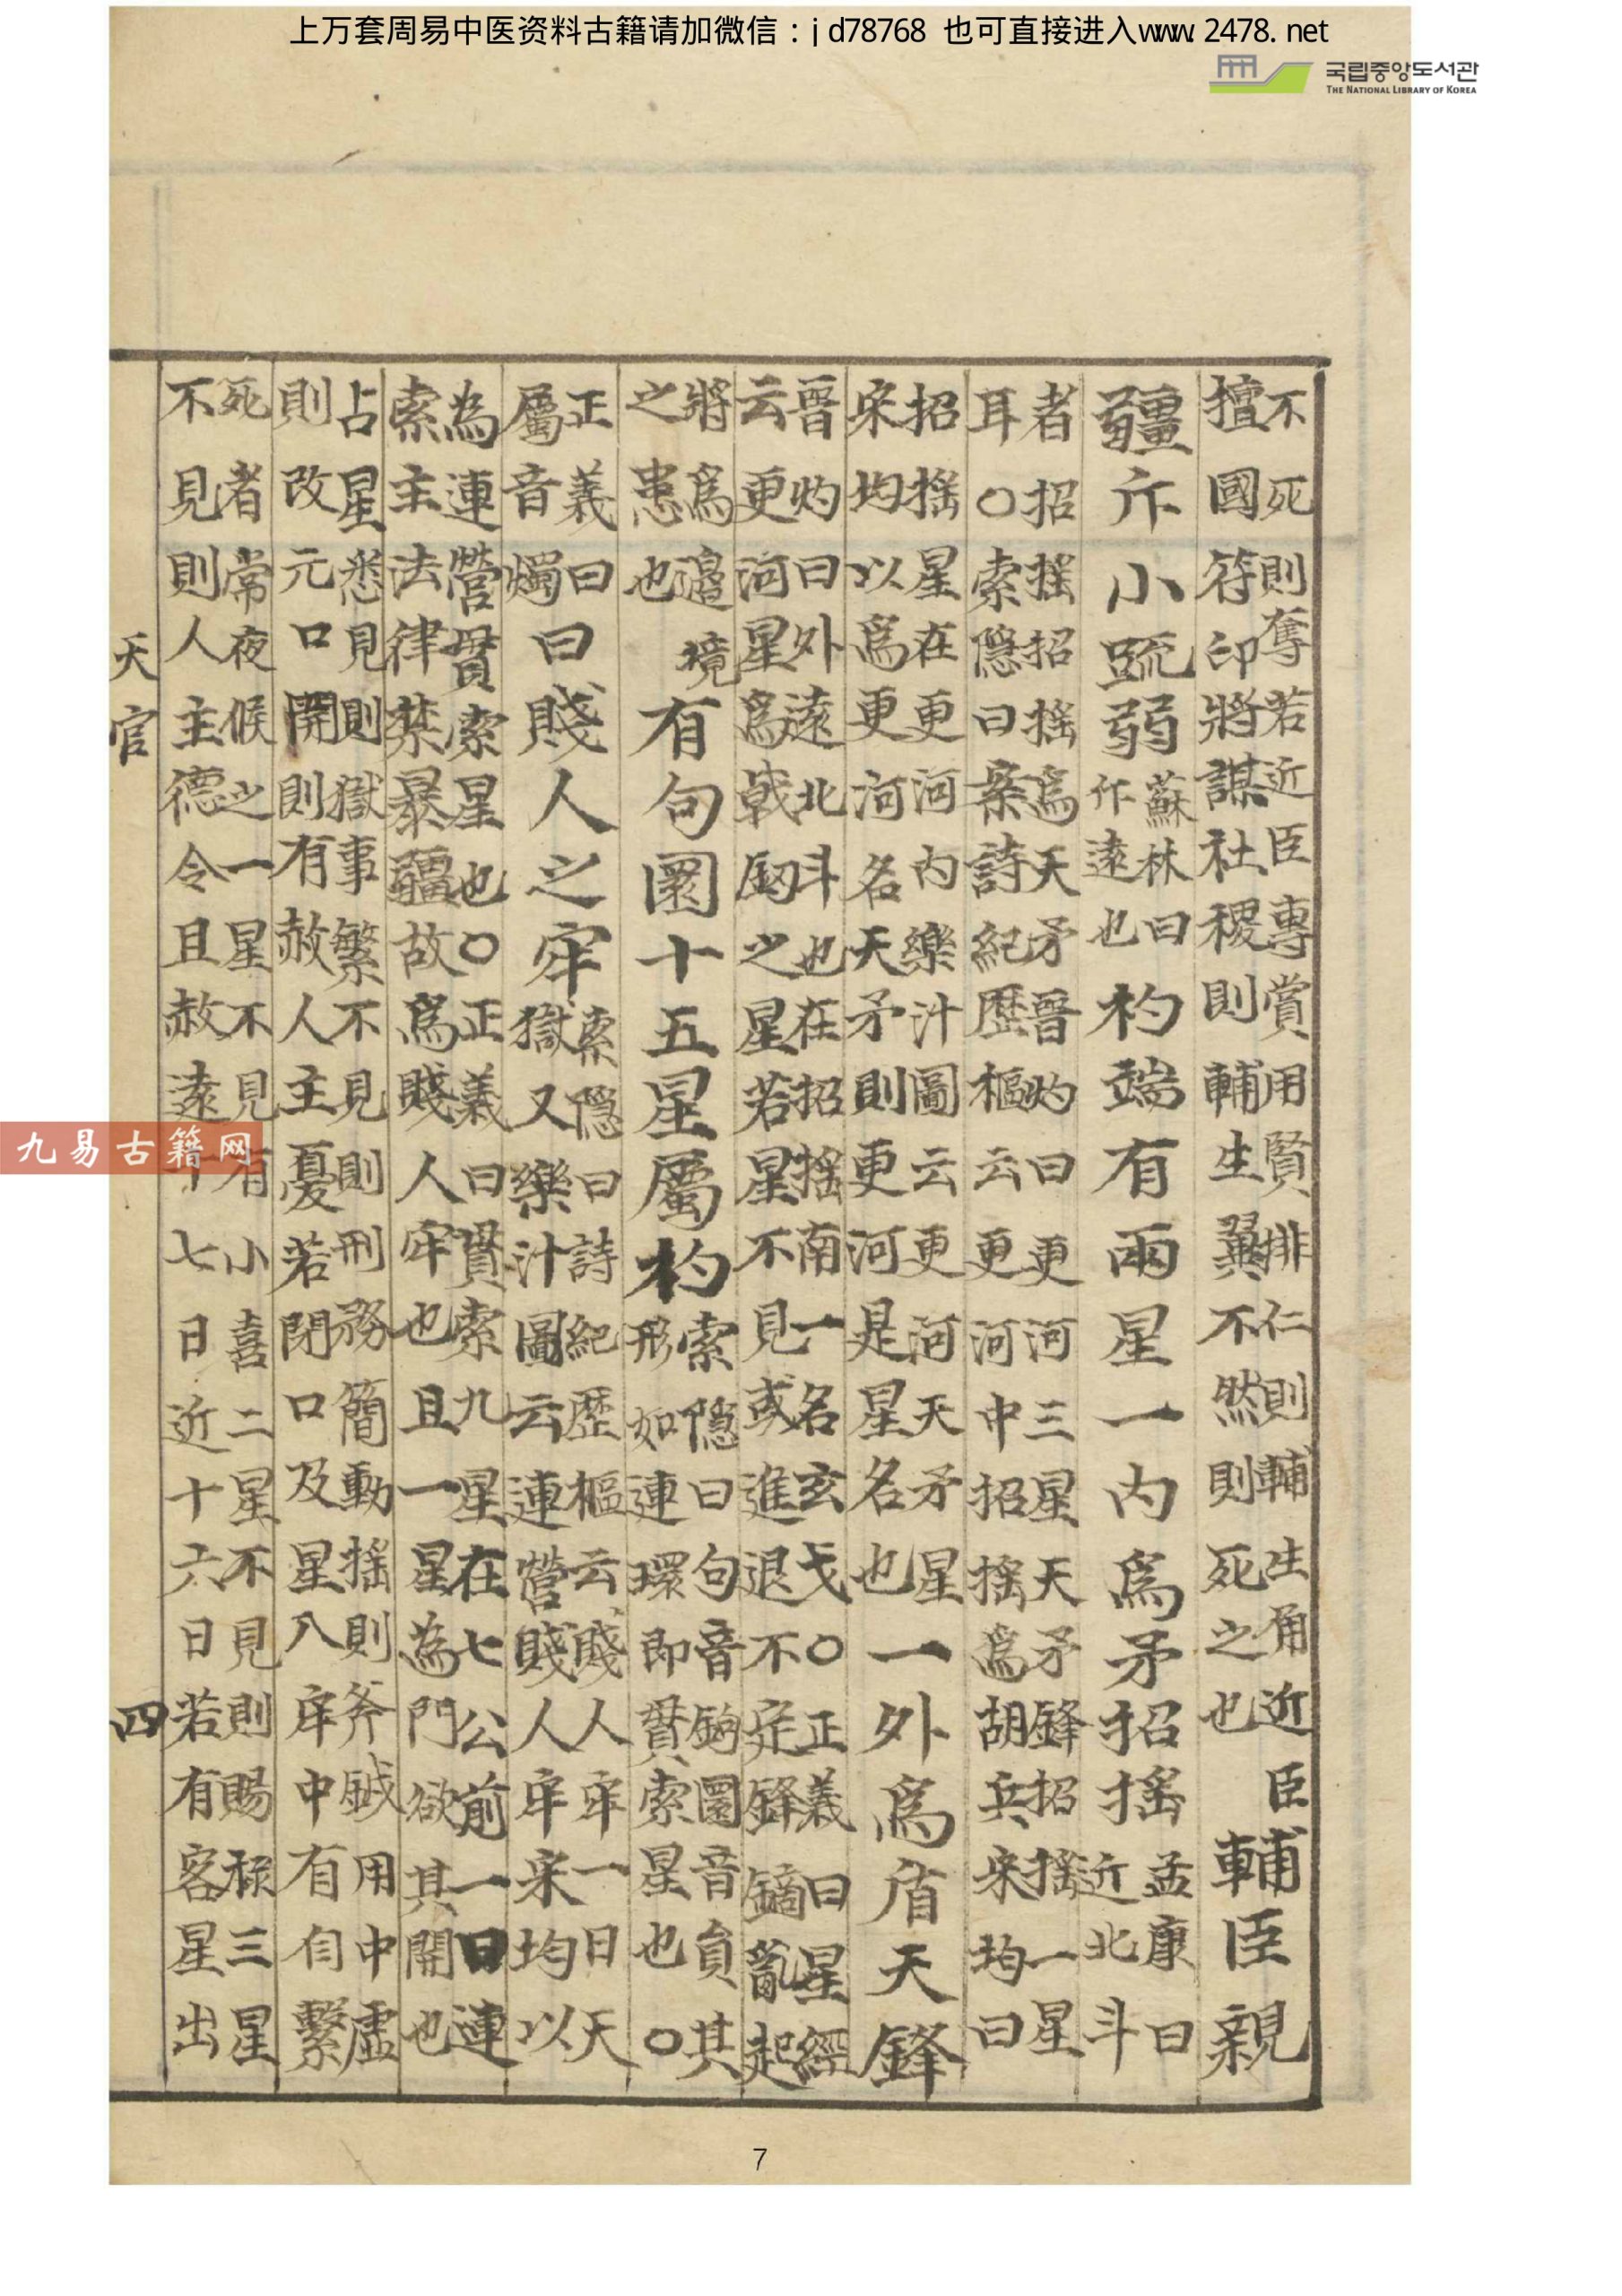 上万套周易中医资料古籍请加微信：jd78768 也可直接进入www.2478.net
국립중앙도서관
THE NATIONAL LIBRARY OF KOREA
不死則奪若近臣專賞用賢排仁則輔生角近臣
擅國符印將謀社稷則輔生翼不然則死之也
輔臣親
疆斥小䟽弱
蘇林曰
斥遠也
杓端有兩星一內爲矛招搖
孟康曰
近北斗
者招搖招搖爲天矛晉灼曰更河三星天矛鋒招搖一星
耳○索隱曰案詩紀歷樞云更河中招搖爲胡兵宋均曰
招搖星在更河內樂汁圖云更河天矛星
宋均以爲更河名天矛則更河是星名也
一外爲盾天鋒
晉灼曰外遠北斗也在招搖南一名玄戈○正義曰星經
云更河星爲戟劒之星若星不見或進退不定鋒鏑亂起
將爲邉境
之患也
有句圜十五星屬杓
索隱曰句音鉤圜音員其
形如連環即貫索星也○
正義曰
屬音燭
曰賤人之牢
索隱曰詩紀歷樞云賤人牢一曰天
獄又樂汁圖云連營賤人牢宋均以
為連營貫索星也○正義曰貫索九星在七公前一曰連
索主法律禁暴疆故爲賤人牢也且一星為門欲其開也
占星悉見則獄事繁不見則刑務簡動搖則斧鉞用中虛
則改元口開則有赦人主憂若閉口及星入牢中有自繫
死者常夜候之一星不見有小喜二星不見則賜祿三星
不見則人主德令且赦遠十七日近十六日若有客星出
天官 四
九易古籍网
7